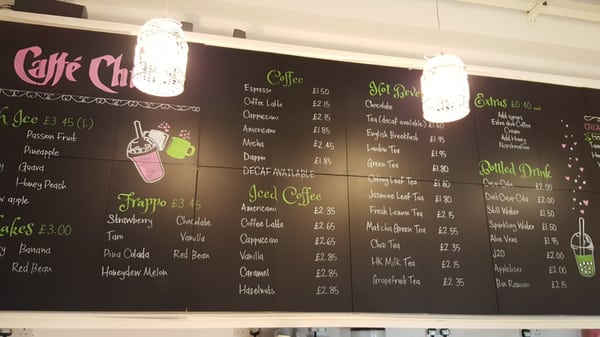 Caffé Ch
h Ice £3.45 (L)
Passion Fruit
Pineapple
Guava
Honey Peach
apple
akes £3.00
Banana
Red Bean
Frappo £3.45
Strawberry Chocolate
Taro Vanilla
Pina Colada Red Bean
Honeydew Melon
Coffee
Espresso £1.50
Coffee Latte £2.15
Cappuccino £2.15
Americano £1.85
Mocha £2.45
Dappio £1.85
DECAF AVAILABLE
Iced Coffee
Americano £2.35
Coffee Latte £2.65
Cappuccino £2.65
Vanilla £2.85
Caramel £2.85
Hazelnuts £2.85
Hot Bev
Chocolate
Tea (decaf available) £1.60
English Breakfast £1.95
London Tea £1.95
Green Tea £1.80
Tea £1.80
Jasmine Leaf Tea £1.80
Fresh Lemon Tea £2.15
Matcha Green Tea £2.55
Chai Tea £2.35
HK Milk Tea £2.15
Grapefruit Tea £2.35
Extras £0.40 each
Add syrups
Extra shot Coffee
Cream
Add Honey
Marshmallow
Bottled Drink
Coca-Cola £2.00
Diet Coca-Cola £2.00
Still Water £1.50
Sparkling Water £1.50
Aloe Vera £1.95
J2O £2.00
Appletiser £2.00
£2.15